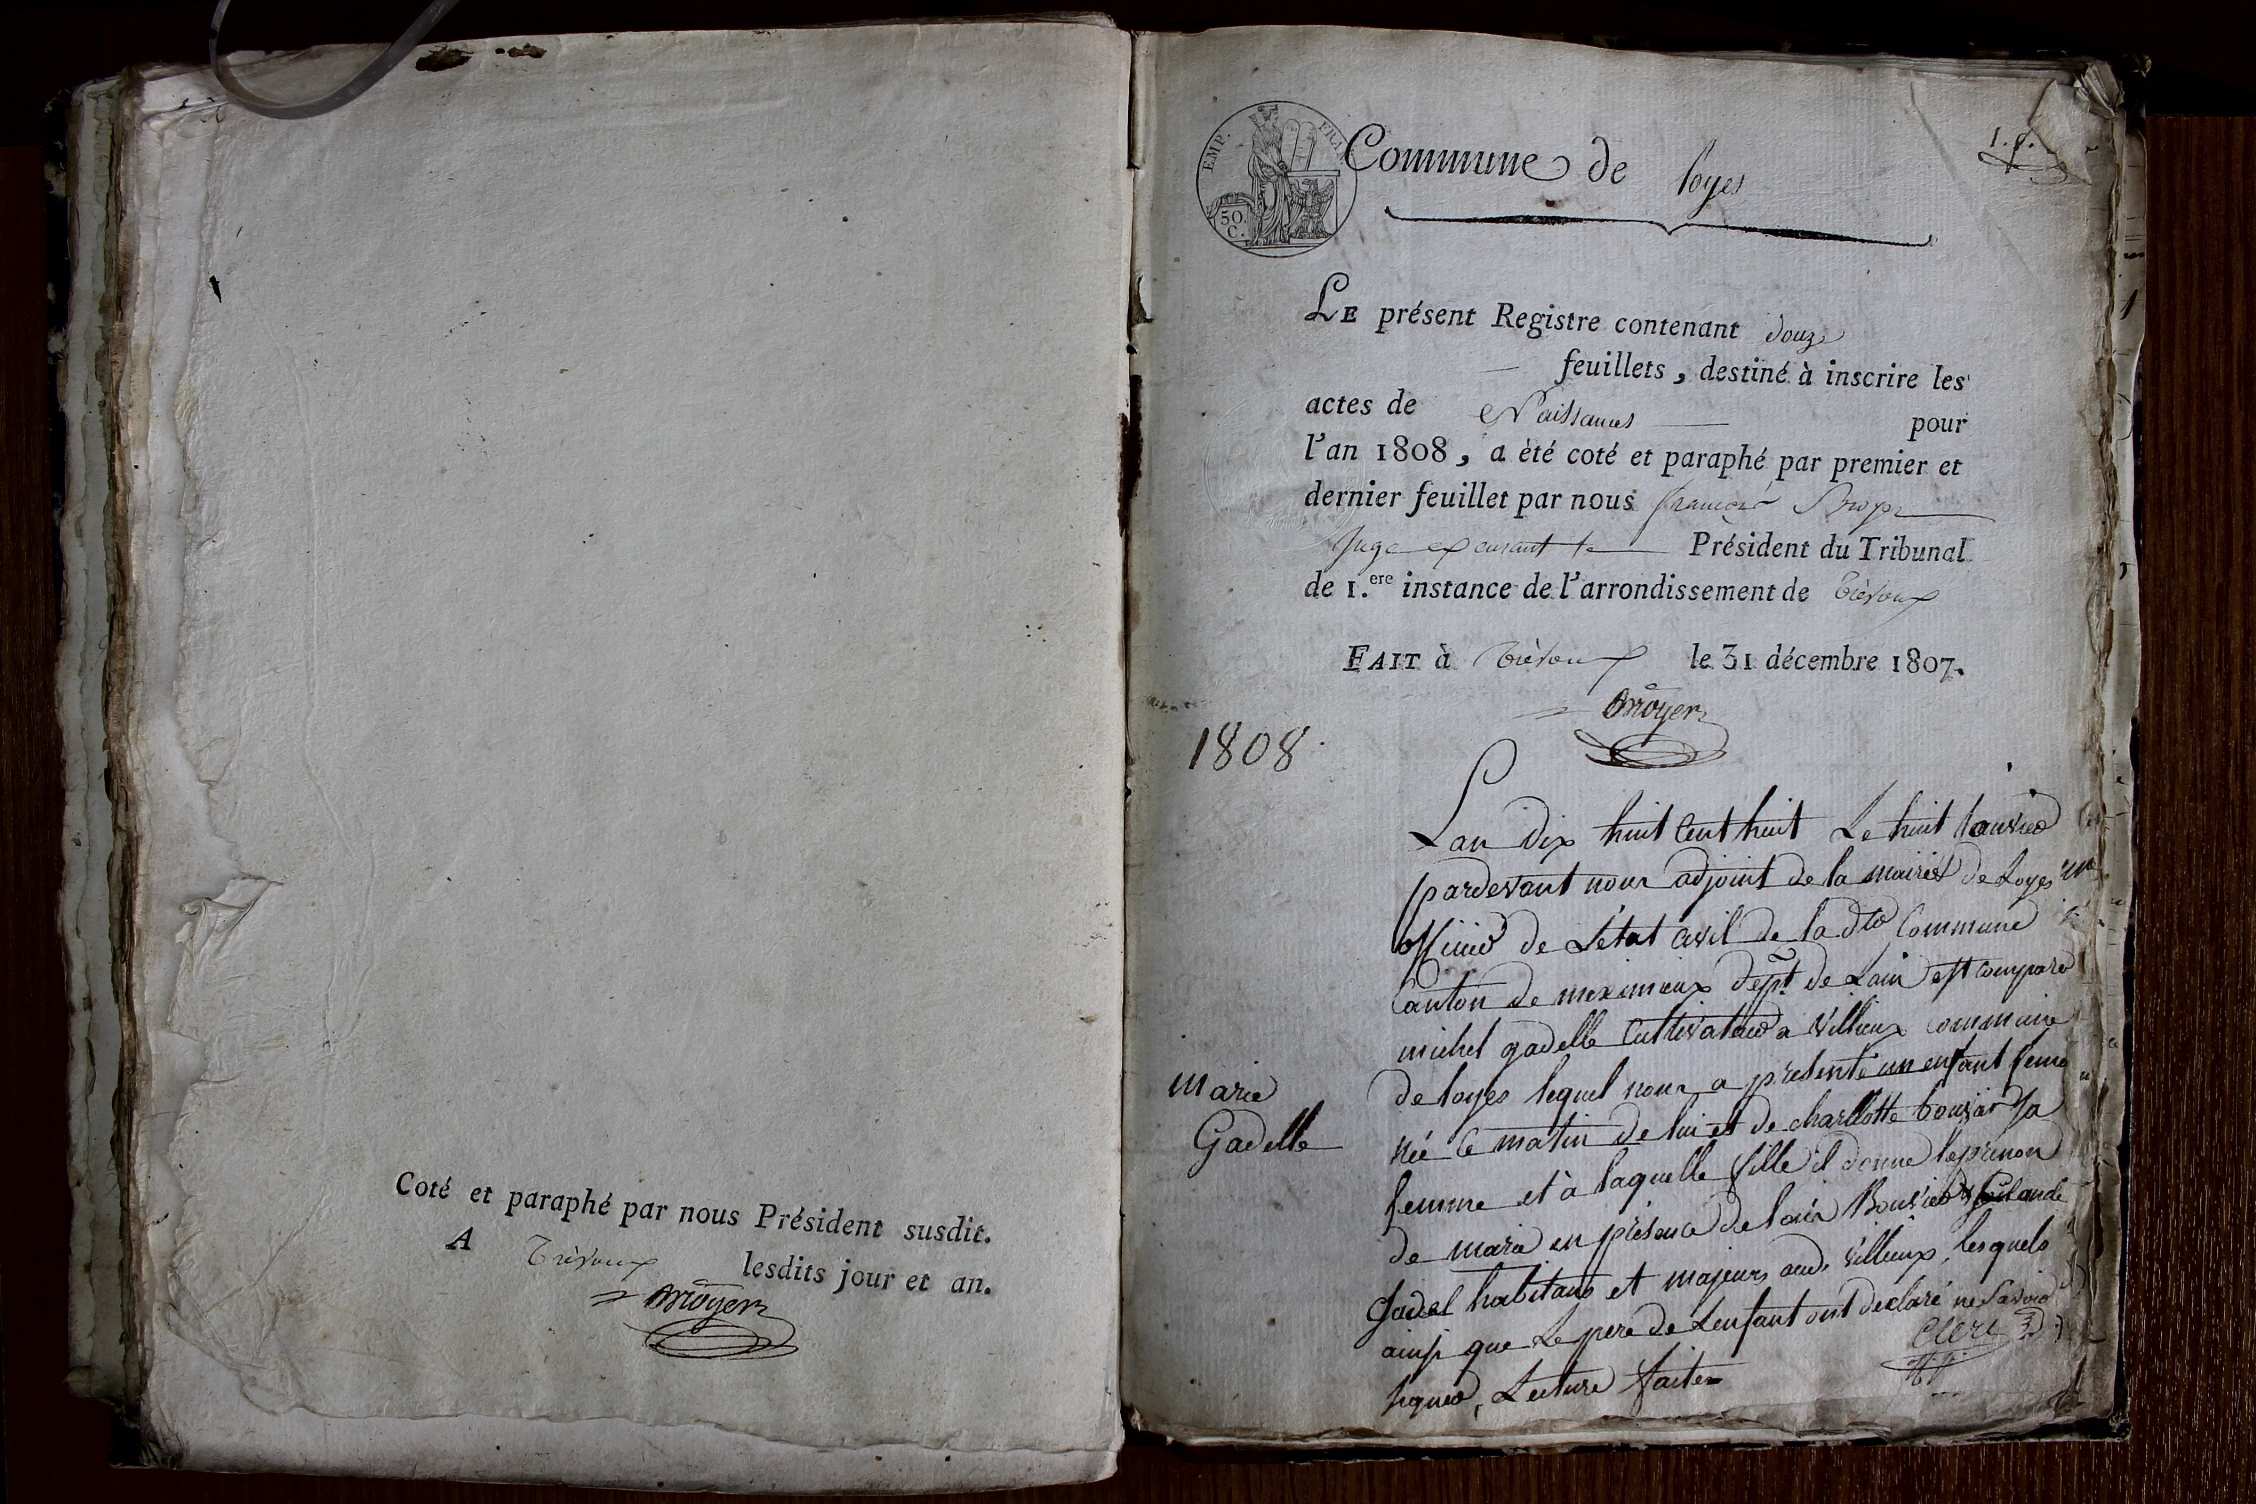 Coté et paraphé par nous Président susdit.
A Trévoux lesdits jour et an.
EMP. FRAN.
50 C.
1.er
Commune de loyes
LE présent Registre contenant douze
feuillets, destiné à inscrire les
actes de Naissances pour
l'an 1808, a été coté et paraphé par premier et
dernier feuillet par nous françois
Juge exerçant le Président du Tribunal
de 1.ere instance de l'arrondissement de Trèvoux
FAIT à Trèvoux le 31 décembre 1807.
1808
Lan dix huit cent huit Le huit Janvier
pardevant nous adjoint de la mairie de Loyes
officier de Létat civil de la dte Commune
Canton de meximieux dept. de Lain est comparu
michel gadelle Cultivateur a Villieux commune
Marie
Gadelle
de loyes lequel nous a présenté un enfant feme
née ce matin de lui et de charllotte bouvier Sa
femme et à laquelle fille il donne le prenon
de marie en présence de loüis Bouvier et Claude
Gadel habitans et majeurs aud. Villieux, lesquels
ainsi que Le pere de Lenfant ont déclaré ne Savoir
signer, Lecture faite
Clerc